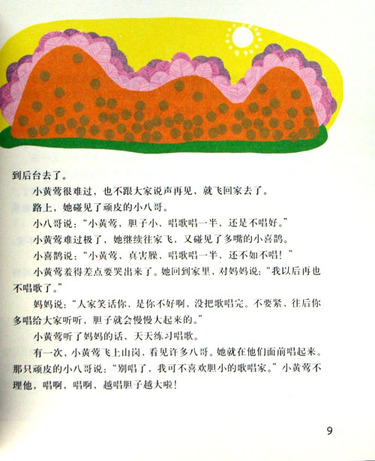 到后台去了。
小黄莺很难过，也不跟大家说声再见，就飞回家去了。
路上，她碰见了顽皮的小八哥。
小八哥说：“小黄莺，胆子小，唱歌唱一半，还是不唱好。”
小黄莺难过极了，她继续往家飞，又碰见了多嘴的小喜鹊。
小喜鹊说：“小黄莺，真害臊，唱歌唱一半，还不如不唱！”
小黄莺羞得差点要哭出来了。她回到家里，对妈妈说：“我以后再也
不唱歌了。”
妈妈说：“人家笑话你，是你不好啊，没把歌唱完。不要紧，往后你
多唱给大家听听，胆子就会慢慢大起来的。”
小黄莺听了妈妈的话，天天练习唱歌。
有一次，小黄莺飞上山岗，看见许多八哥。她就在他们面前唱起来。
那只顽皮的小八哥说：“别唱了，我可不喜欢胆小的歌唱家。”小黄莺不
理他，唱啊，唱啊，越唱胆子越大啦！
9